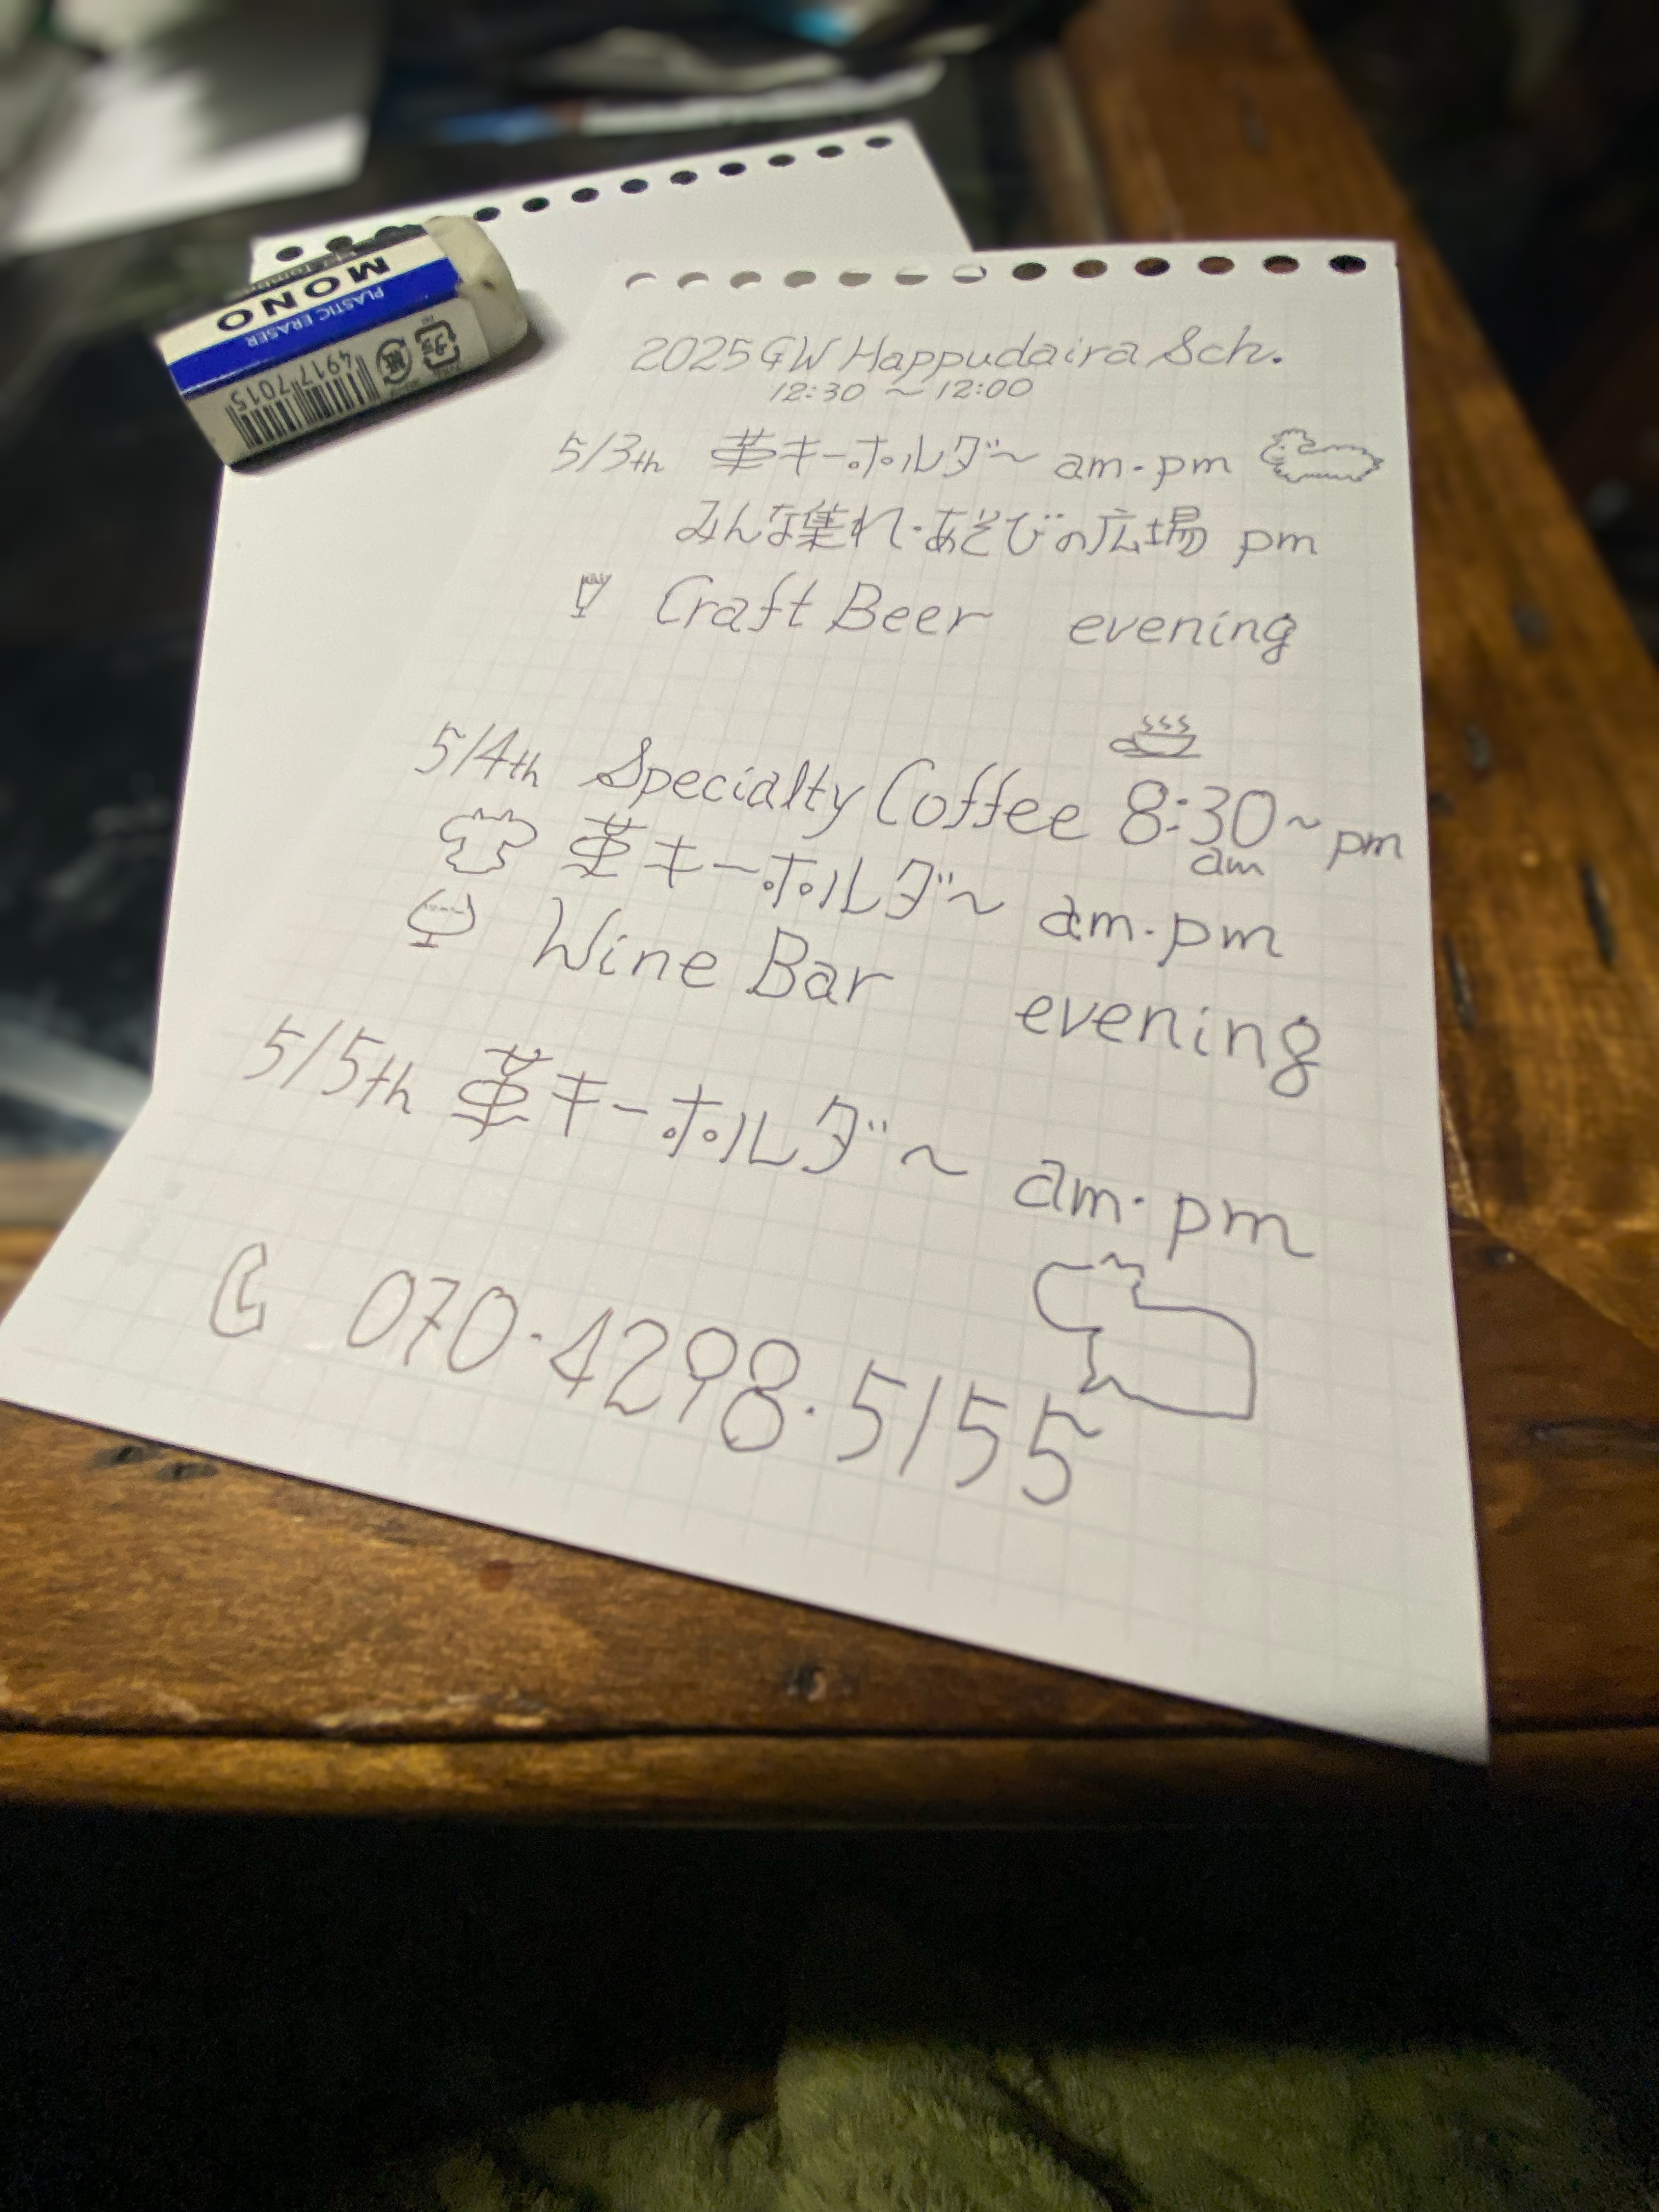 MONO
PLASTIC ERASER
4917 7015
2025 GW Happudaira Sch.
12:30 〜 12:00
5/3th 革キーホルダ〜 am・pm
みんな集れ・あそびの広場 pm
Craft Beer evening
5/4th Specialty Coffee 8:30〜pm
am
革キーホルダ〜 am・pm
Wine Bar evening
5/5th 革キーホルダ〜 am・pm
070・4298・5155